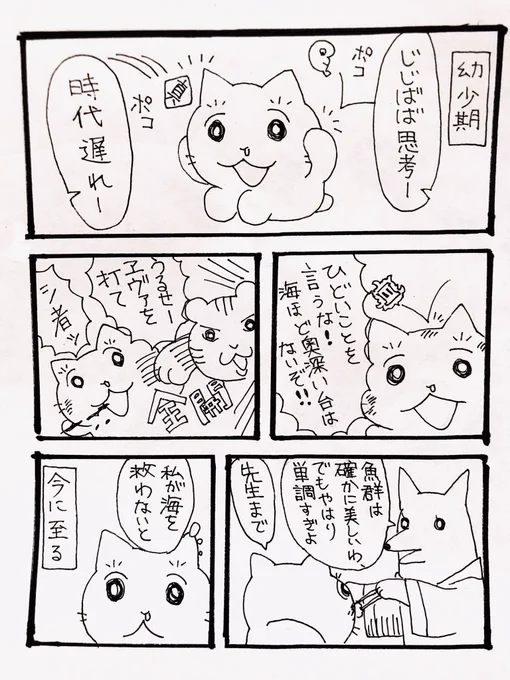 幼少期
じじばば思考ー
ポコ
ポコ
時代遅れー
ひどいことを
言うな!
海ほど奥深い台は
ないぞ!!
うるせー
ヱヴァを
打て
ニ者ッ
魚群は
確かに美しいわ、
でもやはり
単調すぎよ
先生まで
私が海を
救わないと
今に至る